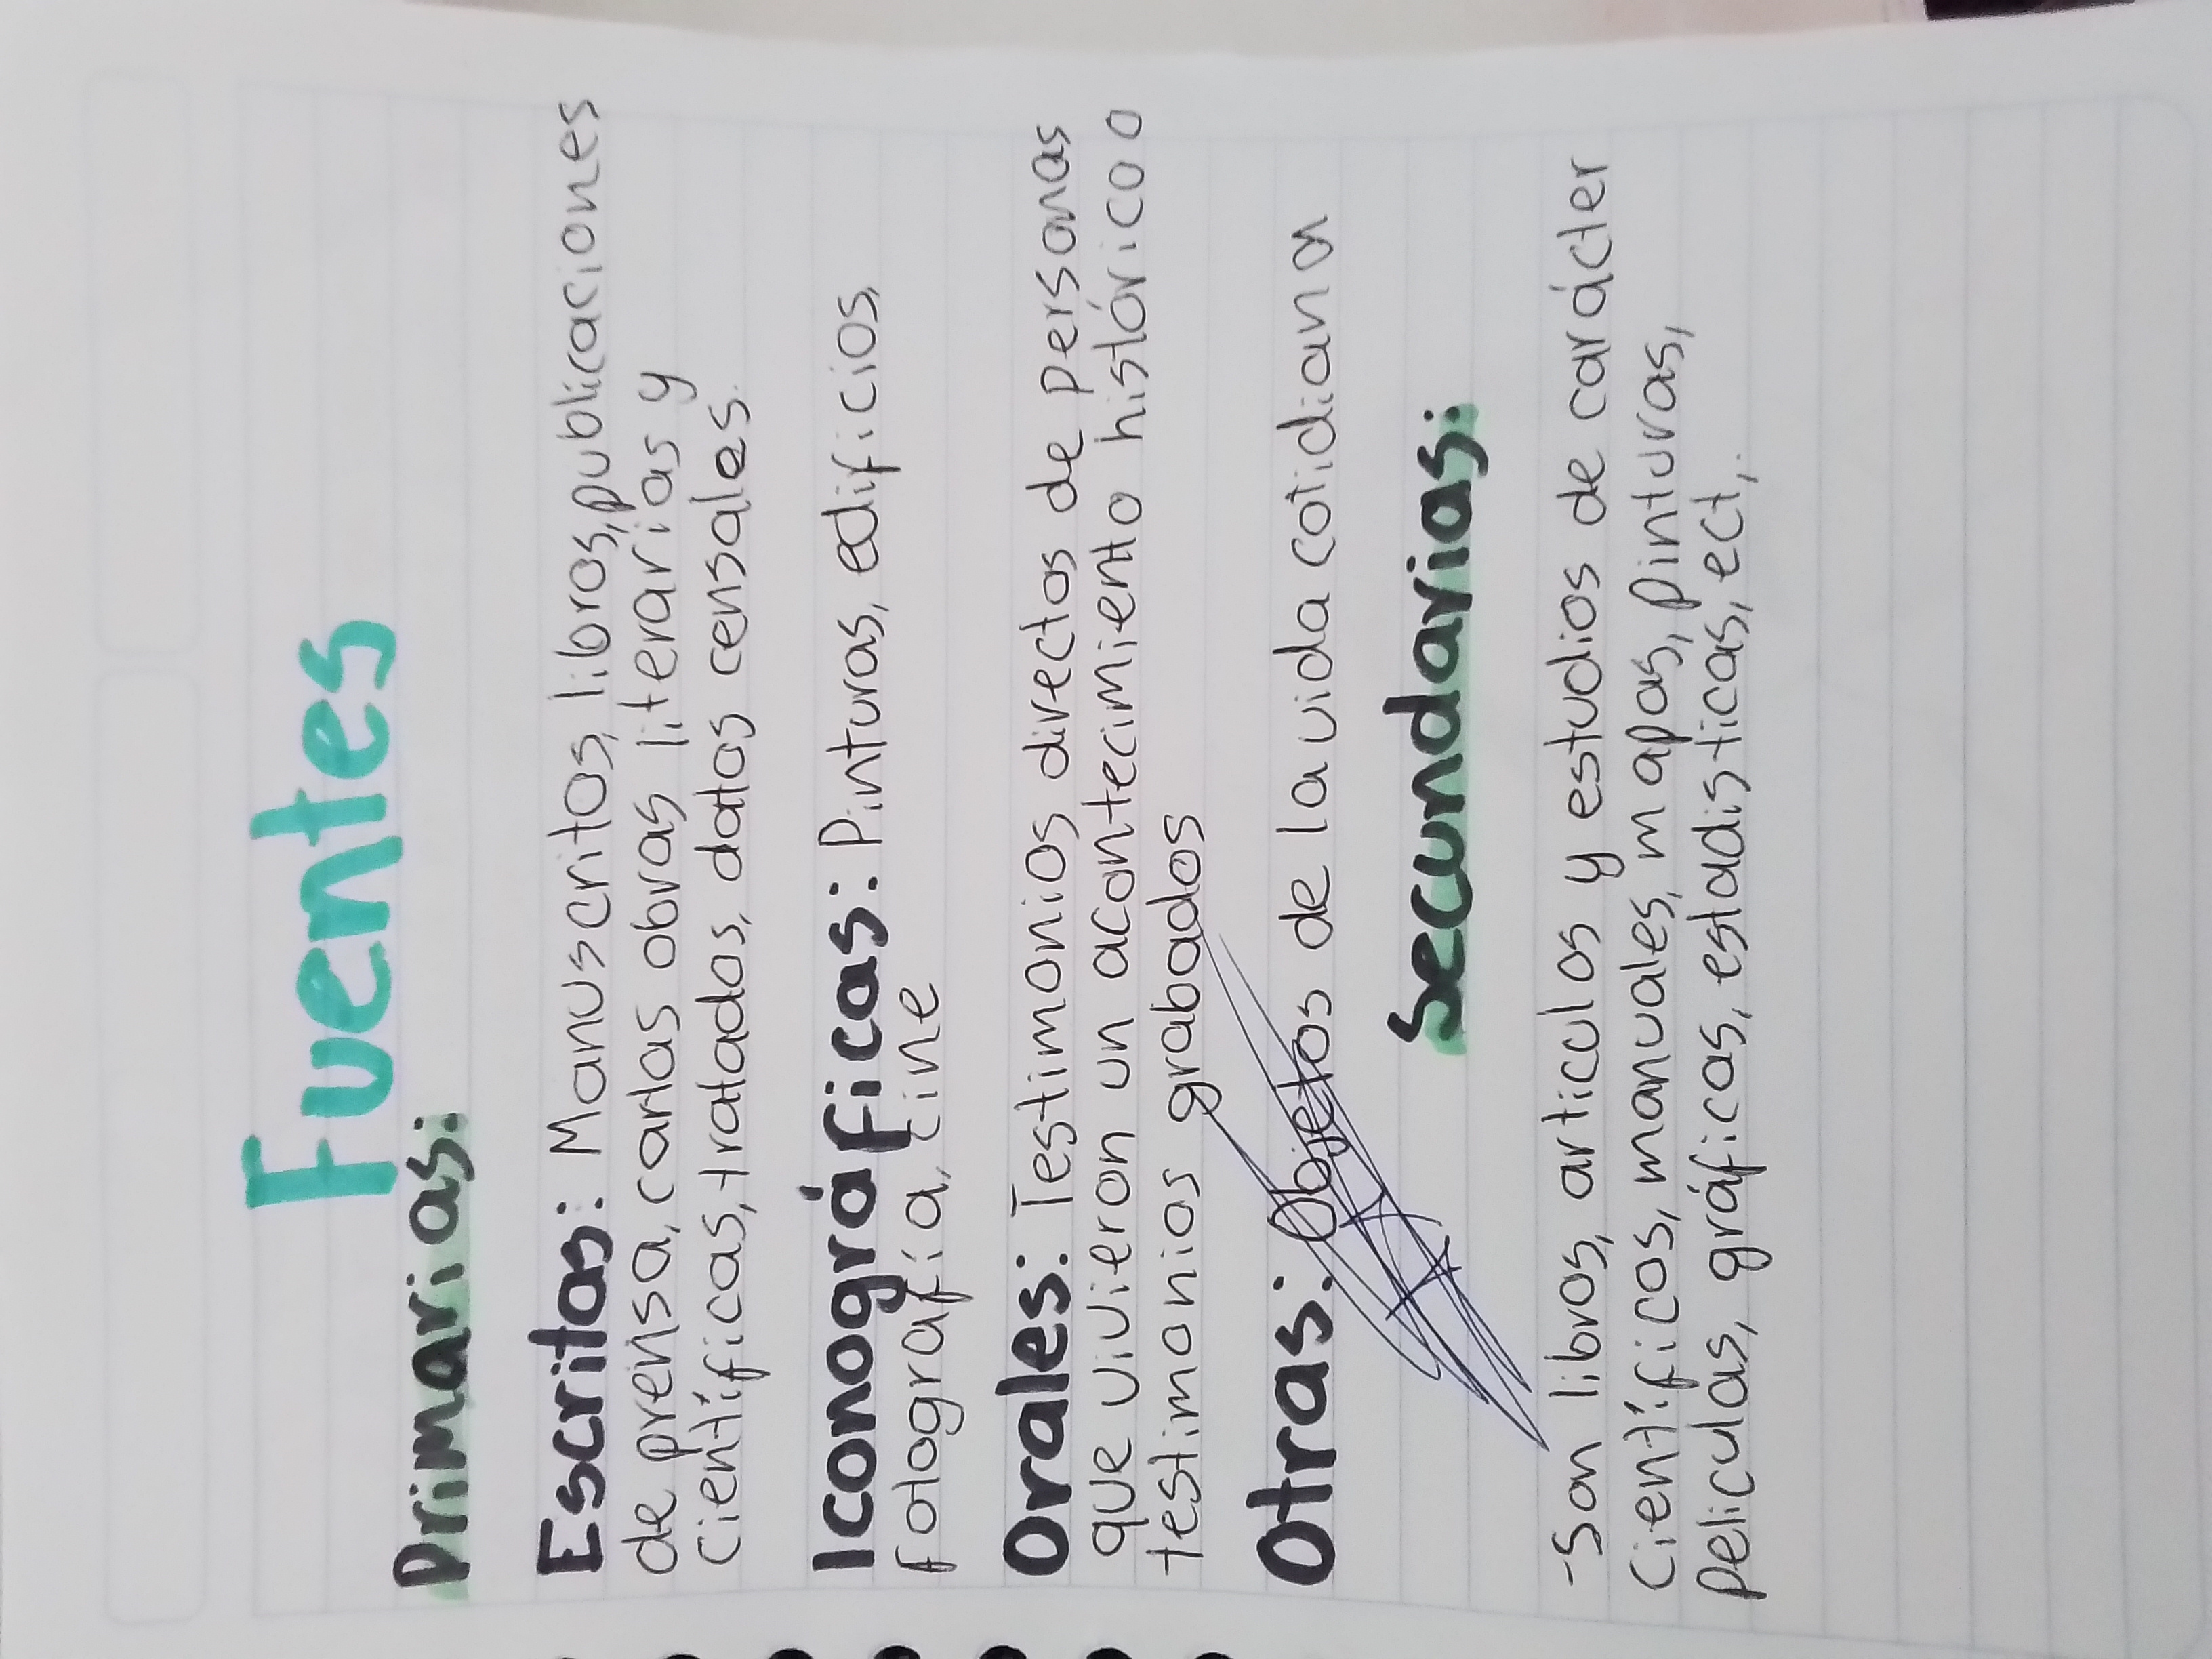 Fuentes
Primarias:
Escritos: Manuscritos, libros, publicaciones
de prensa, cartas obras literarias y
cientificas, tratados, datos censales.
Iconográficas: Pinturas, edificios,
fotografía, cine
Orales: Testimonios directos de personas
que vivieron un acontecimiento histórico o
testimonios grabados
Otras: Objetos de la vida cotidiana
Secundarias:
-Son libros, articulos y estudios de carácter
cientificos, manuales, mapas, pinturas,
peliculas, gráficas, estadisticas, ect,.